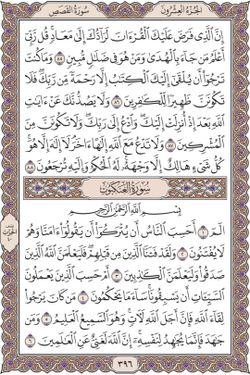 الجُزْءُ العِشْرُونَ
سُورَةُ القَصَصِ
إِنَّ ٱلَّذِى فَرَضَ عَلَيْكَ ٱلْقُرْءَانَ لَرَآدُّكَ إِلَىٰ مَعَادٍ قُل رَّبِّىٓ
أَعْلَمُ مَن جَآءَ بِٱلْهُدَىٰ وَمَنْ هُوَ فِى ضَلَٰلٍ مُّبِينٍ ٨٥ وَمَا كُنتَ
تَرْجُوٓا۟ أَن يُلْقَىٰٓ إِلَيْكَ ٱلْكِتَٰبُ إِلَّا رَحْمَةً مِّن رَّبِّكَ فَلَا
تَكُونَنَّ ظَهِيرًا لِّلْكَٰفِرِينَ ٨٦ وَلَا يَصُدُّنَّكَ عَنْ ءَايَٰتِ
ٱللَّهِ بَعْدَ إِذْ أُنزِلَتْ إِلَيْكَ وَٱدْعُ إِلَىٰ رَبِّكَ وَلَا تَكُونَنَّ مِنَ
ٱلْمُشْرِكِينَ ٨٧ وَلَا تَدْعُ مَعَ ٱللَّهِ إِلَٰهًا ءَاخَرَ لَآ إِلَٰهَ إِلَّا هُوَ
كُلُّ شَىْءٍ هَالِكٌ إِلَّا وَجْهَهُۥ لَهُ ٱلْحُكْمُ وَإِلَيْهِ تُرْجَعُونَ ٨٨
سُورَةُ العَنكَبُوتِ
بِسْمِ ٱللَّهِ ٱلرَّحْمَٰنِ ٱلرَّحِيمِ
الٓمٓ ١ أَحَسِبَ ٱلنَّاسُ أَن يُتْرَكُوٓا۟ أَن يَقُولُوٓا۟ ءَامَنَّا وَهُمْ
لَا يُفْتَنُونَ ٢ وَلَقَدْ فَتَنَّا ٱلَّذِينَ مِن قَبْلِهِمْ فَلَيَعْلَمَنَّ ٱللَّهُ ٱلَّذِينَ
صَدَقُوا۟ وَلَيَعْلَمَنَّ ٱلْكَٰذِبِينَ ٣ أَمْ حَسِبَ ٱلَّذِينَ يَعْمَلُونَ
ٱلسَّيِّـَٔاتِ أَن يَسْبِقُونَا سَآءَ مَا يَحْكُمُونَ ٤ مَن كَانَ يَرْجُوا۟
لِقَآءَ ٱللَّهِ فَإِنَّ أَجَلَ ٱللَّهِ لَءَاتٍ وَهُوَ ٱلسَّمِيعُ ٱلْعَلِيمُ ٥ وَمَن
جَٰهَدَ فَإِنَّمَا يُجَٰهِدُ لِنَفْسِهِۦٓ إِنَّ ٱللَّهَ لَغَنِىٌّ عَنِ ٱلْعَٰلَمِينَ ٦
٣٩٦